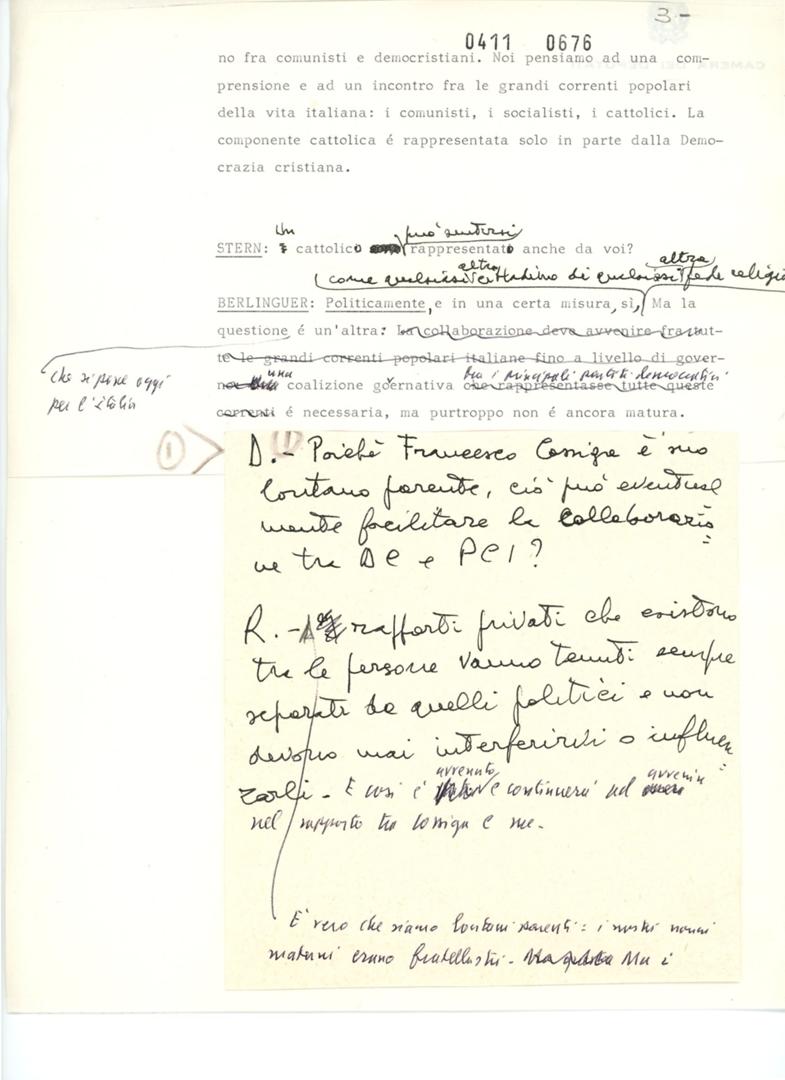 3-
0411 0676
CAMERA DEI DEPUTATI
no fra comunisti e democristiani. Noi pensiamo ad una com-
prensione e ad un incontro fra le grandi correnti popolari
della vita italiana: i comunisti, i socialisti, i cattolici. La
componente cattolica é rappresentata solo in parte dalla Demo-
crazia cristiana.
Un può sentirsi
STERN: cattolico rappresentato anche da voi?
altra altra
(come qualsiasi cittadino di qualsiasi fede religio
BERLINGUER: Politicamente, e in una certa misura, sì, Ma la
questione é un'altra: La collaborazione deve avvenire fra tut-
te le grandi correnti popolari italiane fino a livello di gover-
che si pone oggi
per l'italia
una tra i principali partiti democratici
coalizione goernativa che rappresentasse tutte queste
correnti é necessaria, ma purtroppo non é ancora matura.
1
D.- Poiché Francesco Cossiga è suo
lontano parente, ciò può eventual
mente facilitare la collaborazio
ne tra DC e PCI?
R.- rapporti privati che esistono
tra le persone vanno tenuti sempre
separati da quelli politici e non
devono mai interferirvi o influen
zarli - E così è avvenuto e continuerà ad avvenire
nel rapporto tra Cossiga e me.
E' vero che siamo lontani parenti: i nostri nonni
materni erano fratellastri - Ma questo Ma i